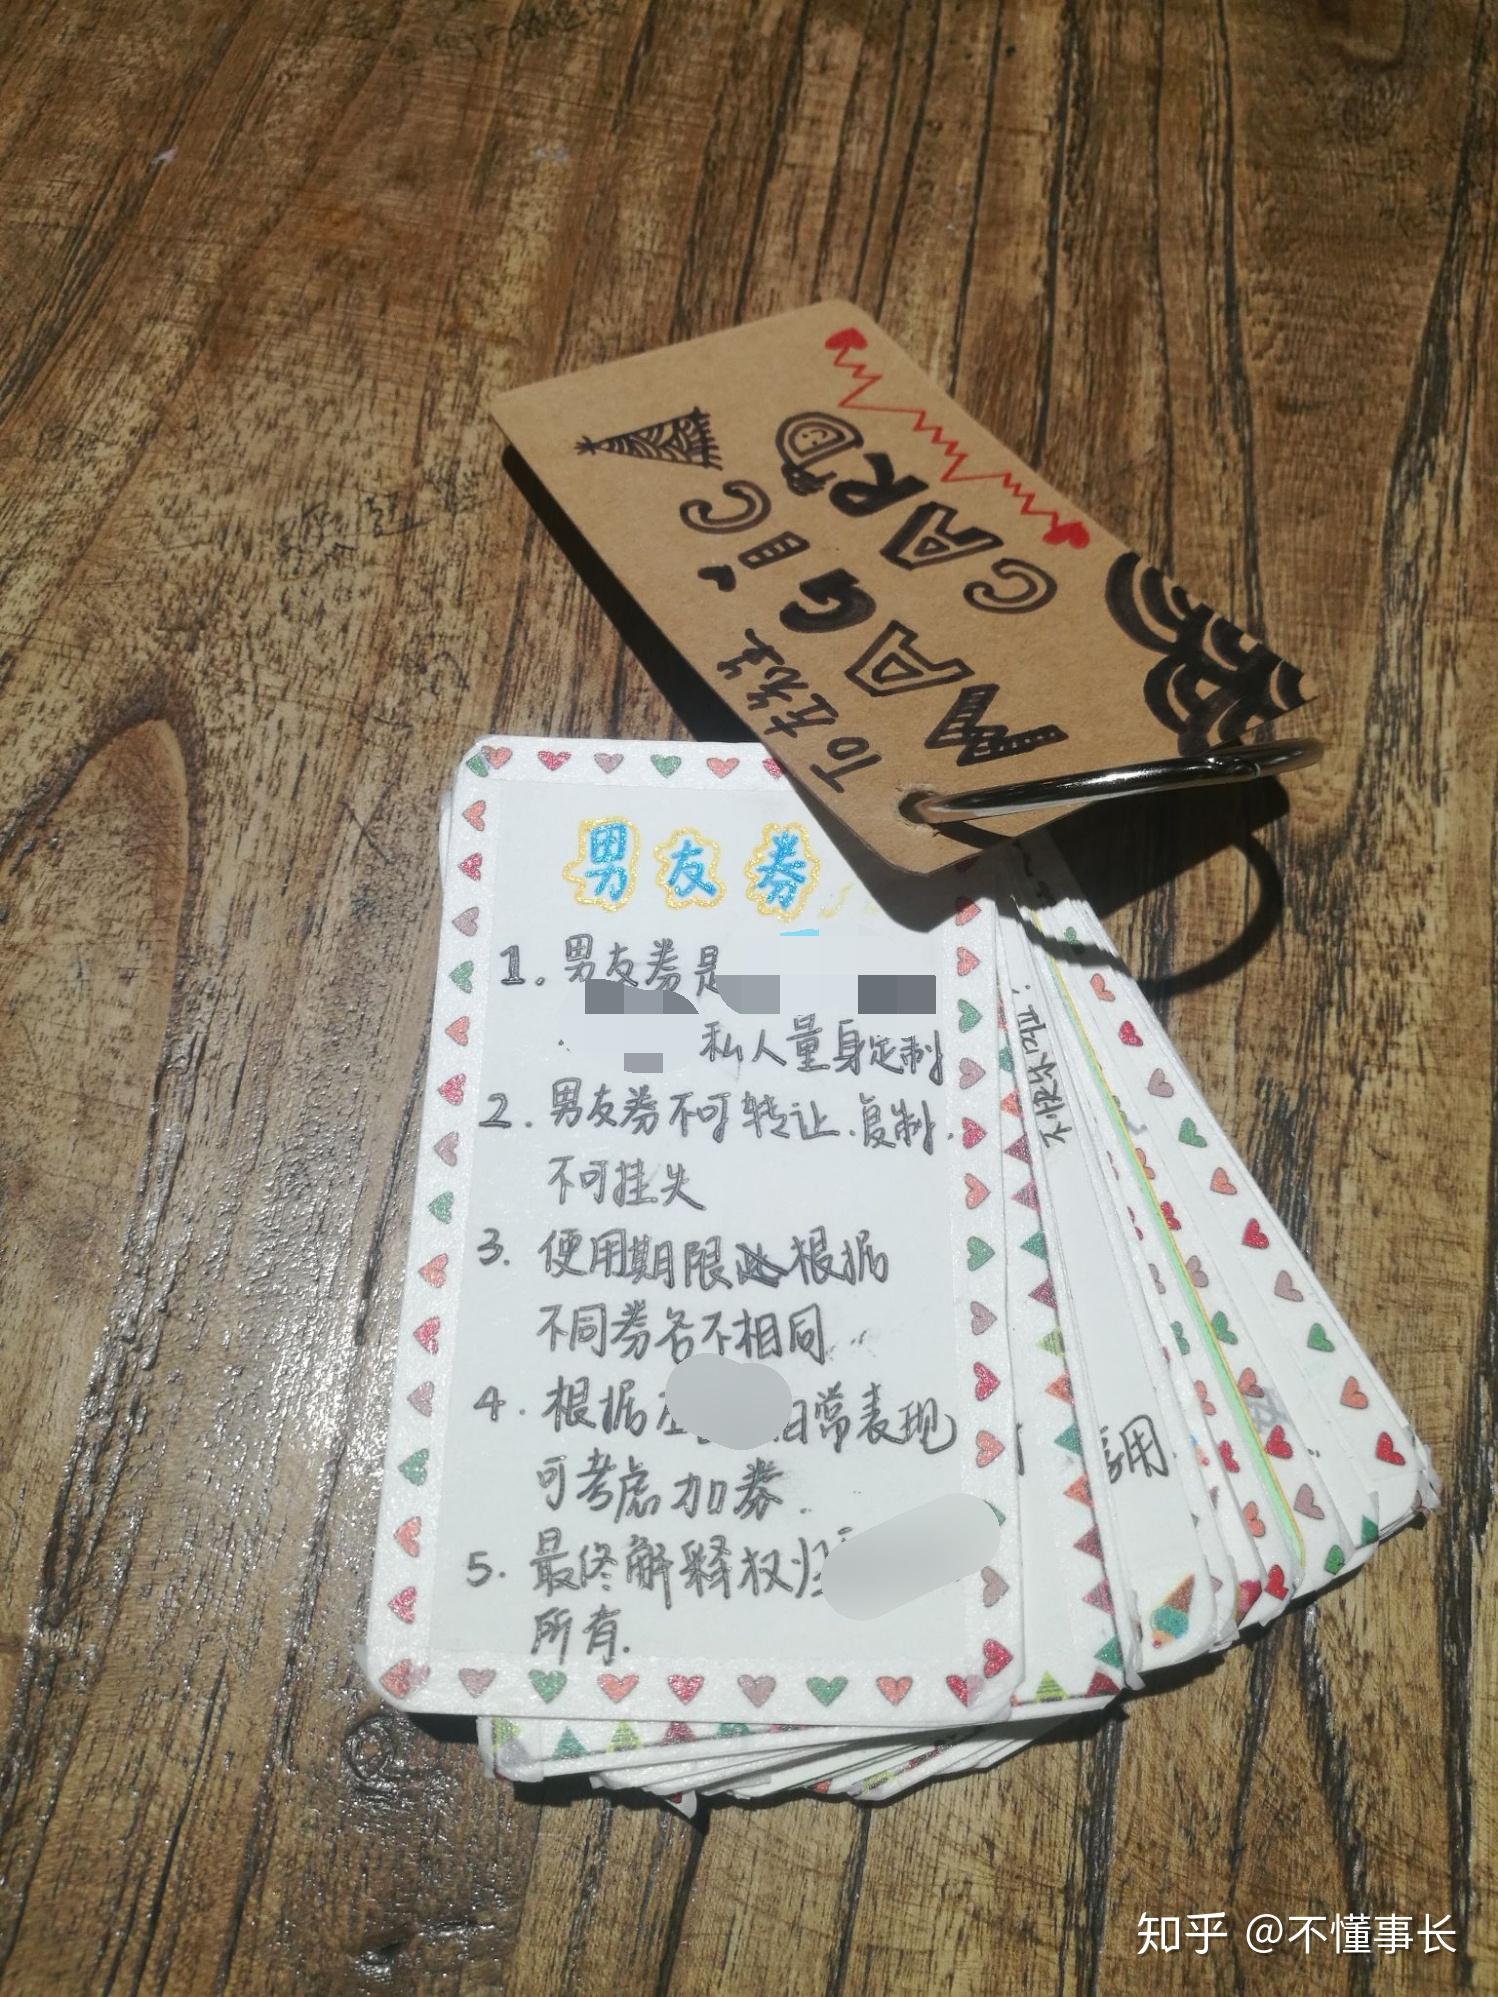 To 左先生
MAGIC
CARD
男友券
1. 男友券是
私人量身定制
2. 男友券不可转让.复制.
不可挂失
3. 使用期限根据
不同券名不相同
4. 根据 日常表现
可考虑加券.
5. 最终解释权归
所有.
知乎 @不懂事长